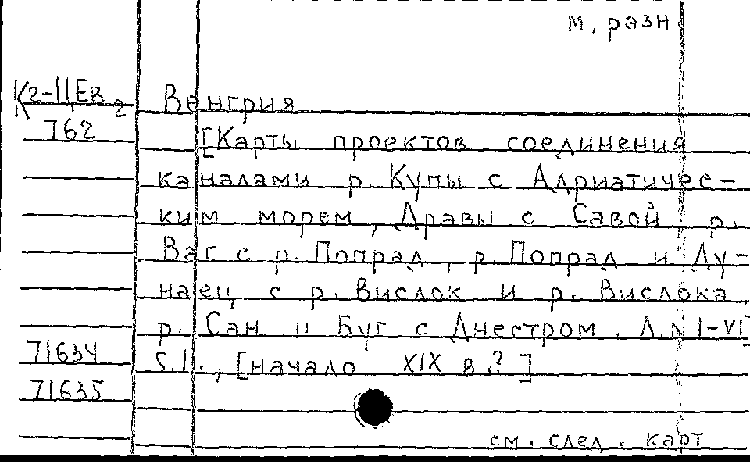 м. разн
К2-ЦЕв 2
762
Венгрия
[Карты проектов соединения
каналами р. Купы с Адриатичес-
ким морем, Дравы с Савой р.
Ваг с р. Попрад, р. Попрад и Ду-
наец с р. Вислок и р. Вислока,
р. Сан и Буг с Днестром. Л.Л I-VI]
71634
S.l., [начало XIX в.?]
71635
см. след. карт